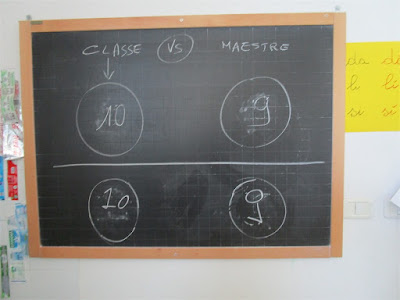 CLASSE VS MAESTRE
10 9
10 9
da de
li li
si si